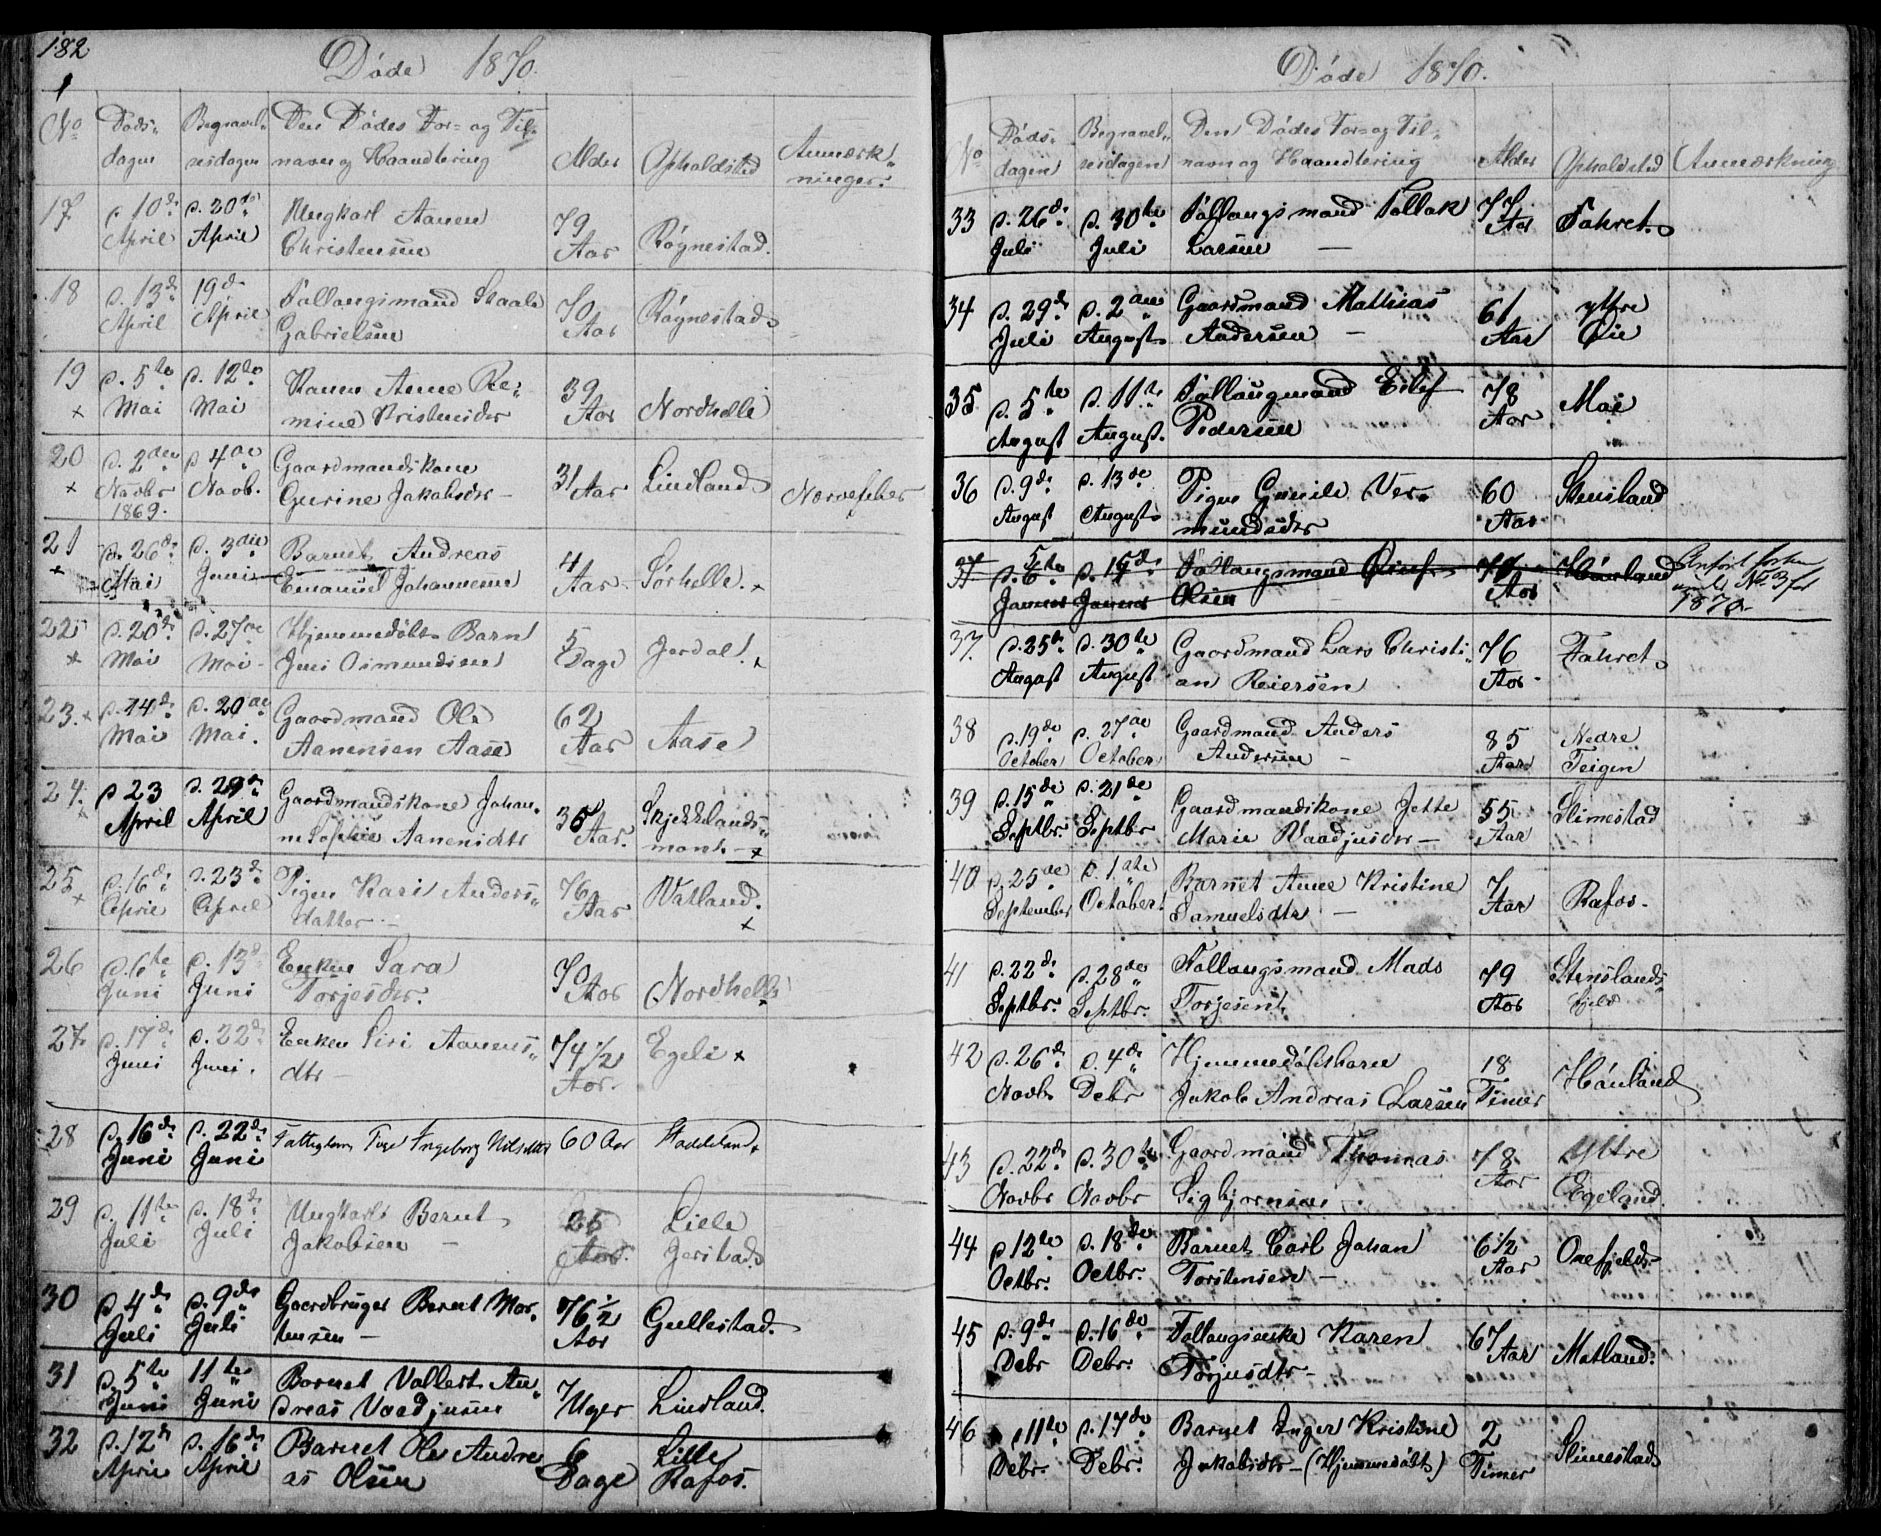 182
Døde 1870.
No
Døds-
dagen
Begravel-
sesdagen
Den Dødes For- og Til-
navn og Haandtering
Alder
Opholdsted
Anmærk-
ninger.
17
d. 10de
April
d. 20de
April
Ungkarl Aanen
Christensen
79
Aar
Røgnestad.
18
d. 13de
April
19de
April
Follaugsmand Staale
Gabrielsen
70
Aar
Røgnestad
19
×
d. 5te
Mai
d. 12te
Mai
Konen Anne Re-
mine Kristensdtr
39
Aar
Nordhelle
20
×
d. 2den
Novbr
1869.
d. 4de
Novb.
Gaardmandskone
Gurine Jakobsdtr -
31 Aar
Lindland
Nervefeber
21
×
d. 26de
Mai
d. 3die
Juni
Barnet Andreas
Emanuel Johannesen
4
Aar
Sørhelle. ×
22
×
d. 20de
Mai
d. 27de
Mai
Hjemmedøbt Barn
Jens Osmundsen
5
Dage
Jerdal. ×
23. ×
d. 14de
Mai
d. 20de
Mai.
Gaardmand Ole
Aanensen Aase
62
Aar
Aase
24.
×
d 23
April
d. 29de
April
Gaardmandskone Johan-
ne Sophie Aanensdtr
36
Aar.
Skjekkelands-
mont. - ×
25
×
d. 16de
April
d. 23de
April
Pigen Kari Anders-
datter -
76
Aar
Watland.
×
26
d. 6te
Juni
d. 13de
Juni
Enken Sara
Torjesdtr.
70
Aar
Nordhelle
27
d. 17de
Juni
d. 22de
Juni.
Enken Siri Aanens-
dtr -
74 1/2
Aar.
Egeli ×
28
d. 16de
Juni
d. 22de
Juni
Fattiglem Ingeborg Nilsdtr
60 Aar
29
d. 11te
Juli
d. 18de
Juli
Ungkarl Bernt
Jakobsen -
25
Aar.
Lille
Jerstad
30
d. 4de
Juli
d. 9de
Juli
Gaardbruger Bernt Mor-
tensen -
76 1/2
Aar
Gullestad.
31
d. 5te
Juni
11te
Juni
Barnet Vallert An-
dreas Vaadjusen
7
Uger
Lindland.
32
d. 12de
April
d. 16de
April
Barnet Ole Andre-
as Olsen
6
Dage
Lille
Rafos.
Døde 1870.
No
Døds-
dagen
Begravel-
sesdagen
Den Dødes For- og Til-
navn og Haandtering
Alder
Opholdsted
Anmærkning
33
d. 26de
Juli
d. 30te
Juli
Follaugsmand Tollak
Larsen -
77
Aar
Fahret.
34
d. 29de
Juli
d. 2den
August
Gaardmand Mathias
Andersen -
61
Aar
ytre
Øie
35
d. 5te
August
d. 11te
August.
Follaugmand Eilef
Pedersen
78
Aar
Moi
36
d. 9de
August
d. 13de
August
Pigen Gunild Ver-
mundsdtr
60
Aar
Stensland
37
d. 6te
Januar
d. 15de
Januar
Follaugsmand
Olsen
77
Aar
Hånland
No 3 for
1870.
37.
d. 25de
August
d. 30te
August
Gaardmand Lars Christi-
an Reiersen
76
Aar
Fahret
38
d. 19de
October
d. 27de
October
Gaardmand Anders
Andersen -
85
Aar
Nedre
Teigen
39
d. 15de
Septbr.
d. 21de
Septbr
Gaardmandskone Jette
Marie Vaadjusdtr -
55
Aar
Slimestad
40
d. 25de
September
d. 1ste
October.
Barnet Anne Kristine
Samuelsdtr -
7
Aar
Rafos.
41
d. 22de
Septbr.
d. 28de
Septbr.
Follaugsmand Mads
Torjesen
79
Aar
Stenslands-
fjeld
42
d. 26de
Novb
d. 4de
Debr
Hjemmedøbtbarn
Jakob Andreas Larsen
18
Timer
Hånland
43
d. 22de
Novbr
d. 30te
Novbr
Gaardmand Thomas
Sigbjørnsen
78
Aar
Ytre
Egeland
44
d 12te
Octbr.
d. 18de
Octbr.
Barnet Carl Johan
Torstensen -
6 1/2
Aar
Orefjeld
45
d. 9de
Debr
d. 16de
Debr.
Follaugsenke Karen
Torjusdtr -
67
Aar
Motland.
46
d 11te
Debr.
d. 17de
Debr.
Barnet Inger Kristine
Jakobsdtr - (Hjemmedøbt)
2
Timer
Slimestad